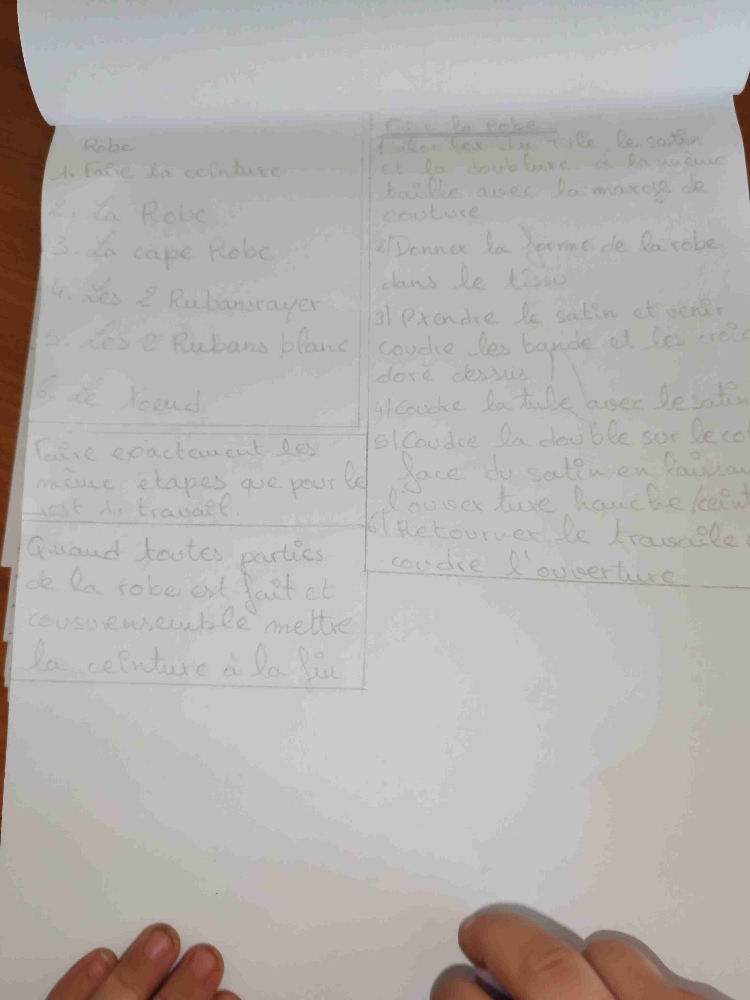 Robe
1. Faire la ceinture
2. La Robe
3. La cape Robe
4. Les 2 Rubansrayer
5. Les 2 Rubans blanc
6. Le noeud
Faire exactement les
même étapes que pour le
rest du travail.
Quand toutes parties
de la robe est fait et
cousuensemble mettre
la ceinture à la fin
Faire la Robe
du tule le satin
et la doublure à la même
taille avec la marge de
couture
2/ Donner la forme de la robe
dans le tissu
3/ Prendre le satin et venir
coudre les bande et les croix
doré dessus
4/ Coudre la tule avec le satin
5/ Coudre la double sur le
face du satin en laissan
l'ouverture hanche/cein
6/ Retourner le travaile
coudre l'ouverture